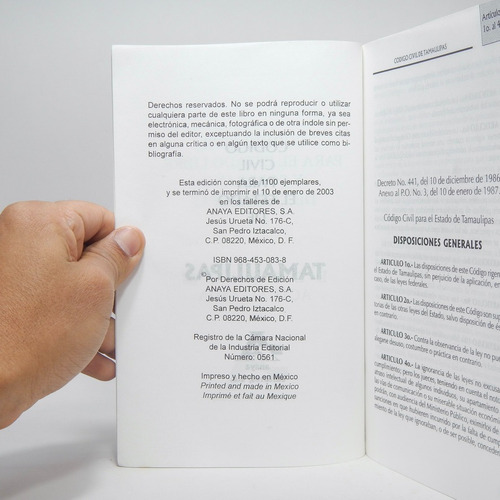 Derechos reservados. No se podrá reproducir o utilizar
cualquiera parte de este libro en ninguna forma, ya sea
electrónica, mecánica, fotográfica o de otra índole sin per-
miso del editor, exceptuando la inclusión de breves citas
en alguna crítica o en algún texto que se utilice como bi-
bliografía.
Esta edición consta de 1100 ejemplares,
y se terminó de imprimir el 10 de enero de 2003
en los talleres de
ANAYA EDITORES, S.A.
Jesús Urueta No. 176-C,
San Pedro Iztacalco,
C.P. 08220, México, D. F.
ISBN 968-453-083-8
Por Derechos de Edición
ANAYA EDITORES, S.A.
Jesús Urueta No. 176-C,
San Pedro Iztacalco,
C.P 08220, México, D.F.
Registro de la Cámara Nacional
de la Industria Editorial
Número: 0561
Impreso y hecho en México
Printed and made in Mexico
Imprimé et fait au Mexique
Artículo
1o. al 4
CODIGO CIVIL DE TAMAULIPAS
Decreto No. 441, del 10 de diciembre de 1986
Anexo al P.O. No. 3, del 10 de enero de 1987.
Código Civil para el Estado de Tamaulipas
DISPOSICIONES GENERALES
ARTICULO 1o.- Las disposiciones de este Código rigen
el Estado de Tamaulipas, sin perjuicio de la aplicación, en
de las leyes federales.
ARTICULO 2o.- Las disposiciones de este Código son sup
rias de las otras leyes del Estado, salvo disposición de
en contrario.
ARTICULO 3o.- Contra la observancia de la ley no pu
alegarse desuso, costumbre o práctica en contrario.
ARTICULO 4o.- La ignorancia de las leyes no excusa
cumplimiento; pero los jueces, teniendo en cuenta el notor
atraso intelectual de algunos individuos, su apartamiento
las vías de comunicación o su miserable situación económ
dan, con audiencia del Ministerio Público, eximirlos de
sanciones en que hubieren incurrido por la falta de cump
miento de la ley que ignoraban, o de ser posible, conceder